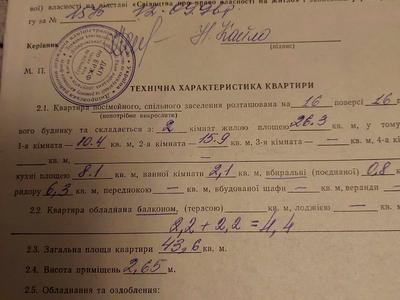 ої) власності на підставі «Свідоцтва про право власності на житло»
ту за № 1585 12.09.96р
Керівник Н. Кайло
(підпис)
М. П.
ТЕХНІЧНА ХАРАКТЕРИСТИКА КВАРТИРИ
2.1. Квартира посімейного, спільного заселення розташована на 16 поверсі 16
(непотрібне викреслити)
вого будинку та складається з: 2 кімнат жилою площею 26.3 кв. м, у тому
1-а кімната — 10.4 кв. м, 2-а кімната — 15.9 кв. м, 3-я кімната — — кв. м, 4-а кі
— кв. м, —
кухні площею 8.1 кв. м, ванної кімнати 2,1 кв. м, вбиральні (поєднаної) 0,8 к
ридору 6,3 кв. м, передпокою — кв. м, вбудованої шафи — кв. м, веранди —
2.2. Квартира обладнана балконом, (терасою) кв. м, лоджією — кв. м
2,2 + 2,2 = 4,4
2.3. Загальна площа квартири 43,6 кв. м.
2.4. Висота приміщень 2,65 м.
2.5. Обладнання та оздоблення: